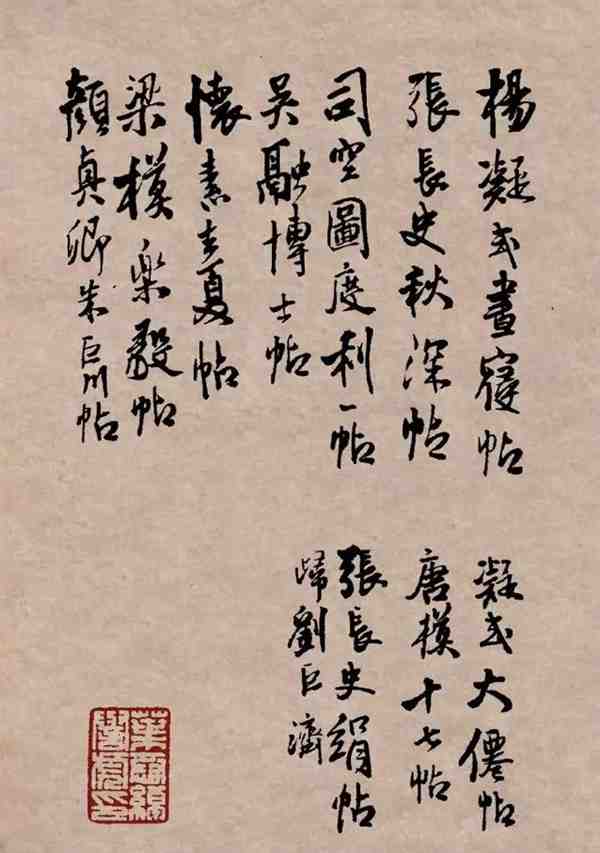 楊凝式晝寢帖
張長史秋深帖
司空圖度利一帖
吳融博士帖
懷素夏帖
梁模樂毅帖
顏真卿朱巨川帖
凝式大僊帖
唐模十七帖
張長史絹帖
歸劉巨濟